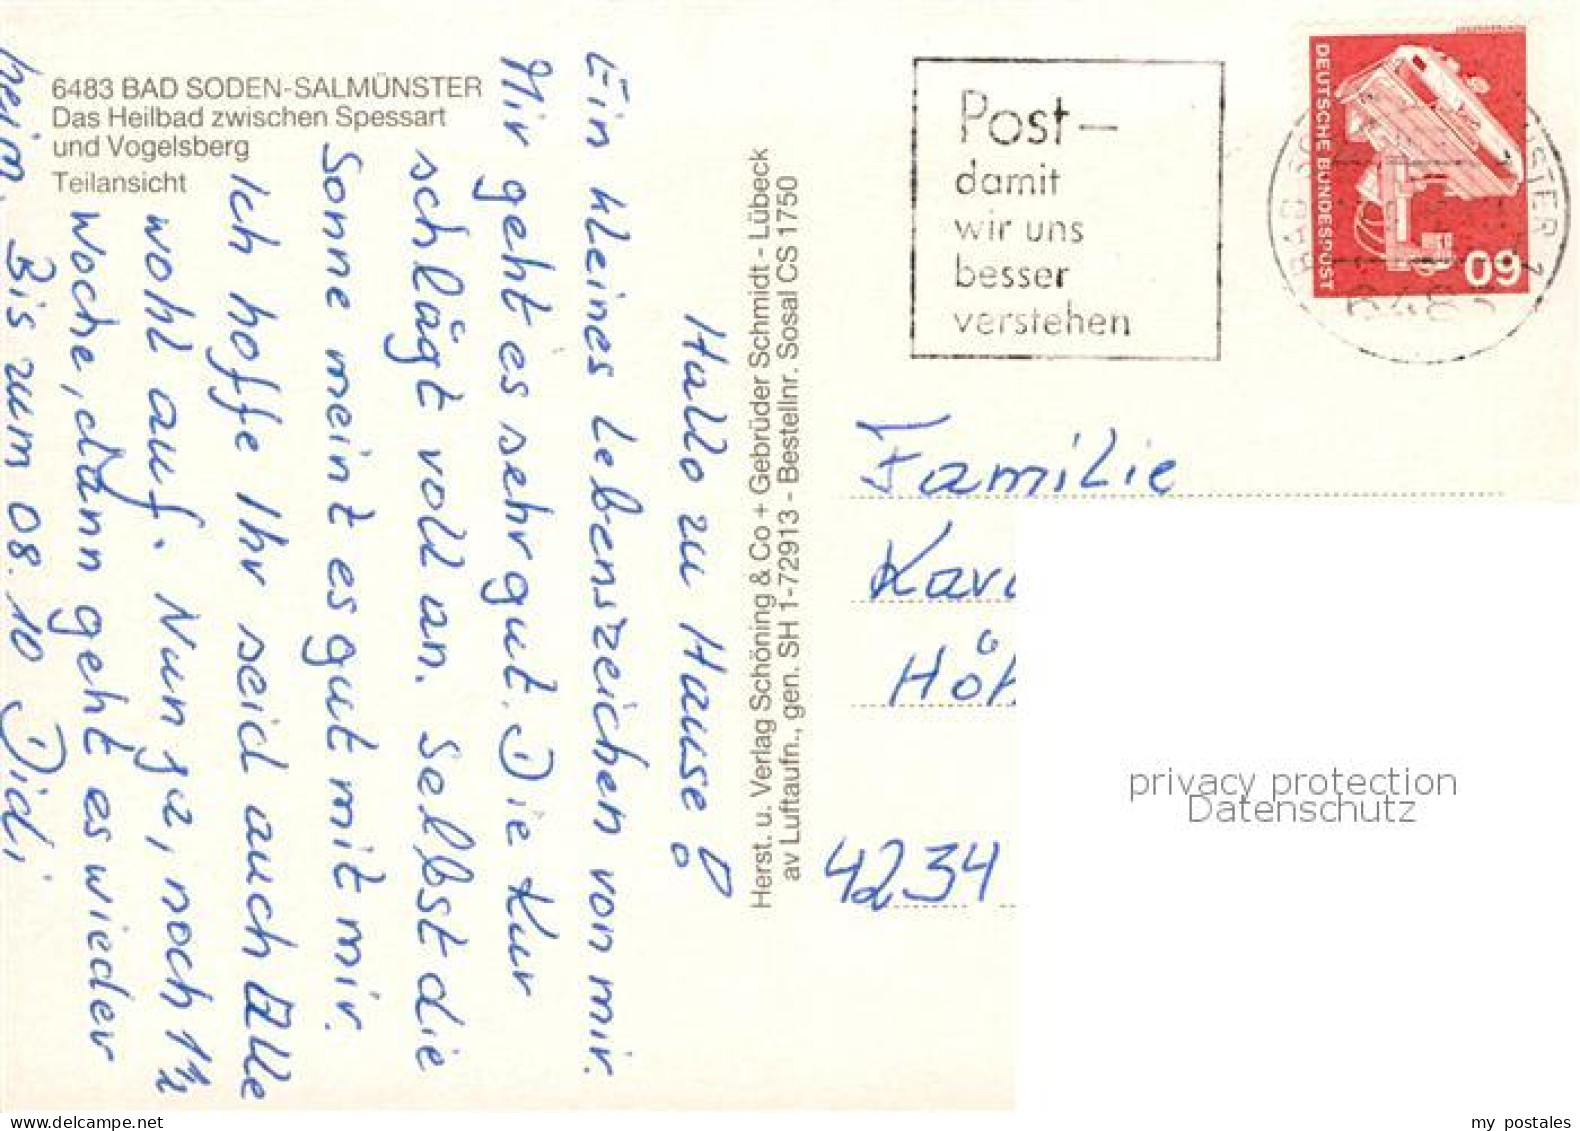 6483 BAD SODEN-SALMÜNSTER
Das Heilbad zwischen Spessart
und Vogelsberg
Teilansicht
Hallo zu Hause!
Ein kleines Lebenszeichen von mir.
Mir geht es sehr gut. Die Kur
schlägt voll an. Selbst die
Sonne meint es gut mit mir.
Ich hoffe Ihr seid auch Alle
wohl auf. Nun ja, noch 1½
Woche, dann geht es wieder
heim. Bis zum 08.10 Didi
Herst. u. Verlag Schöning & Co + Gebrüder Schmidt - Lübeck
av Luftaufn., gen. SH 1-72913 - Bestellnr. Sosal CS 1750
Post–
damit
wir uns
besser
verstehen
DEUTSCHE BUNDESPOST
60
Familie
Höh
4234
privacy protection
Datenschutz
my postales